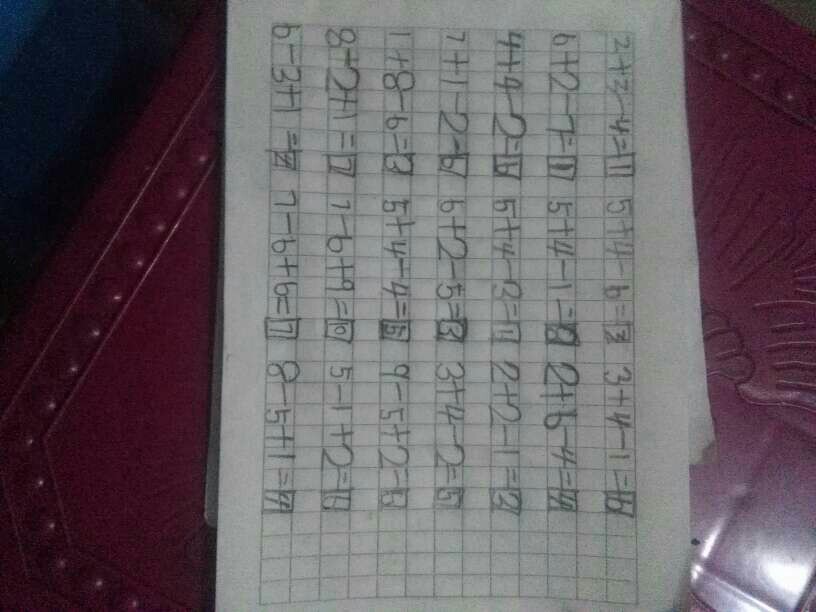 2+3-4=1 5+4-6=3 3+4-1=6
6+2-7=1 5+4-1=8 2+6-4=4
4+4-2=6 5+4-3= 2+2-1=3
7+1-2=6 6+2-5=3 3+4-2=5
1+8-6=3 5+4-4=5 9-5+2=6
8-2+1=7 7-6+9=10 5-1+2=6
6-3+1=4 7-6+6=7 8-5+1=4